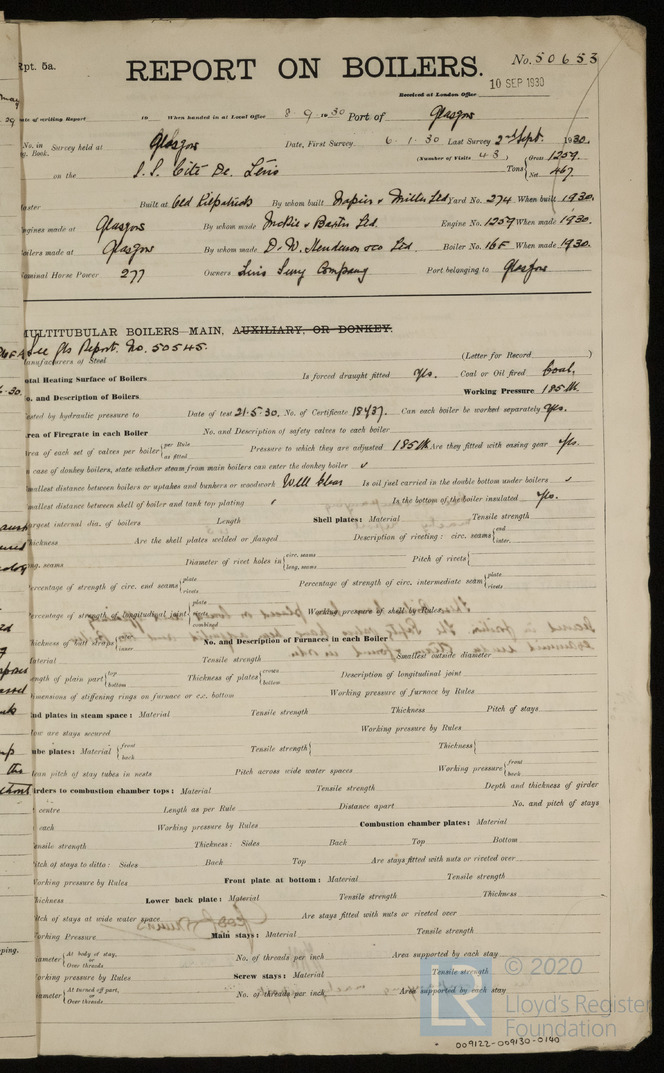 Rpt. 5a.
REPORT ON BOILERS.
No. 50653
Received at London Office 10 SEP 1930
ate of writing Report 19 When handed in at Local Office 8.9.1930 Port of Glasgow
No. in Survey held at Glasgow Date, First Survey 6.1.30 Last Survey 2nd Sept. 1930.
g. Book. (Number of Visits 43)
on the S.S. Cité De. Tons { Gross 1259. Net 467
aster Built at Old Kilpatrick By whom built Napier & Miller Ltd Yard No. 274 When built 1930.
ngines made at Glasgow By whom made McKie & Baxter Ltd. Engine No. 1259 When made 1930.
oilers made at Glasgow By whom made D. W. Henderson & Co Ltd. Boiler No. 16F When made 1930.
ominal Horse Power 277 Owners Company Port belonging to Glasgow
MULTITUBULAR BOILERS MAIN, AUXILIARY, OR DONKEY.
See Gls Report. No. 50545.
anufacturers of Steel (Letter for Record )
otal Heating Surface of Boilers Is forced draught fitted Yes. Coal or Oil fired Coal.
o. and Description of Boilers Working Pressure 185 lb.
ested by hydraulic pressure to Date of test 21.5.30. No. of Certificate 18437. Can each boiler be worked separately Yes.
rea of Firegrate in each Boiler No. and Description of safety valves to each boiler
rea of each set of valves per boiler { per Rule as fitted Pressure to which they are adjusted 185 lb Are they fitted with easing gear Yes.
n case of donkey boilers, state whether steam from main boilers can enter the donkey boiler ✓
mallest distance between boilers or uptakes and bunkers or woodwork Well Clear Is oil fuel carried in the double bottom under boilers
mallest distance between shell of boiler and tank top plating In the bottom of the boiler insulated Yes.
argest internal dia. of boilers Length Shell plates: Material Tensile strength
hickness Are the shell plates welded or flanged Description of riveting: circ. seams { end inter.
ng. seams Diameter of rivet holes in { circ. seams long. seams Pitch of rivets {
ercentage of strength of circ. end seams { plate rivets Percentage of strength of circ. intermediate seam { plate rivets
ercentage of strength of longitudinal joint { plate rivets combined Working pressure of shell by Rules
hickness of butt straps { inner No. and Description of Furnaces in each Boiler
aterial Tensile strength Smallest outside diameter
ength of plain part { top bottom Thickness of plates { crown bottom Description of longitudinal joint
imensions of stiffening rings on furnace or c.c. bottom Working pressure of furnace by Rules
nd plates in steam space: Material Tensile strength Thickness Pitch of stays
ow are stays secured Working pressure by Rules
ube plates: Material { front back Tensile strength { Thickness {
ean pitch of stay tubes in nests Pitch across wide water spaces Working pressure { front back
irders to combustion chamber tops: Material Tensile strength Depth and thickness of girder
centre Length as per Rule Distance apart No. and pitch of stays
each Working pressure by Rules Combustion chamber plates: Material
ensile strength Thickness: Sides Back Top Bottom
itch of stays to ditto: Sides Back Top Are stays fitted with nuts or riveted over
orking pressure by Rules Front plate at bottom: Material Tensile strength
hickness Lower back plate: Material Tensile strength Thickness
itch of stays at wide water space Are stays fitted with nuts or riveted over
orking Pressure Main stays: Material Tensile strength
iameter { At body of stay, or Over threads No. of threads per inch Area supported by each stay
orking pressure by Rules Screw stays: Material Tensile strength
iameter { At turned off part, or Over threads No. of threads per inch Area supported by each stay
LR © 2020
Lloyd's Register
Foundation
009122-009130-0140